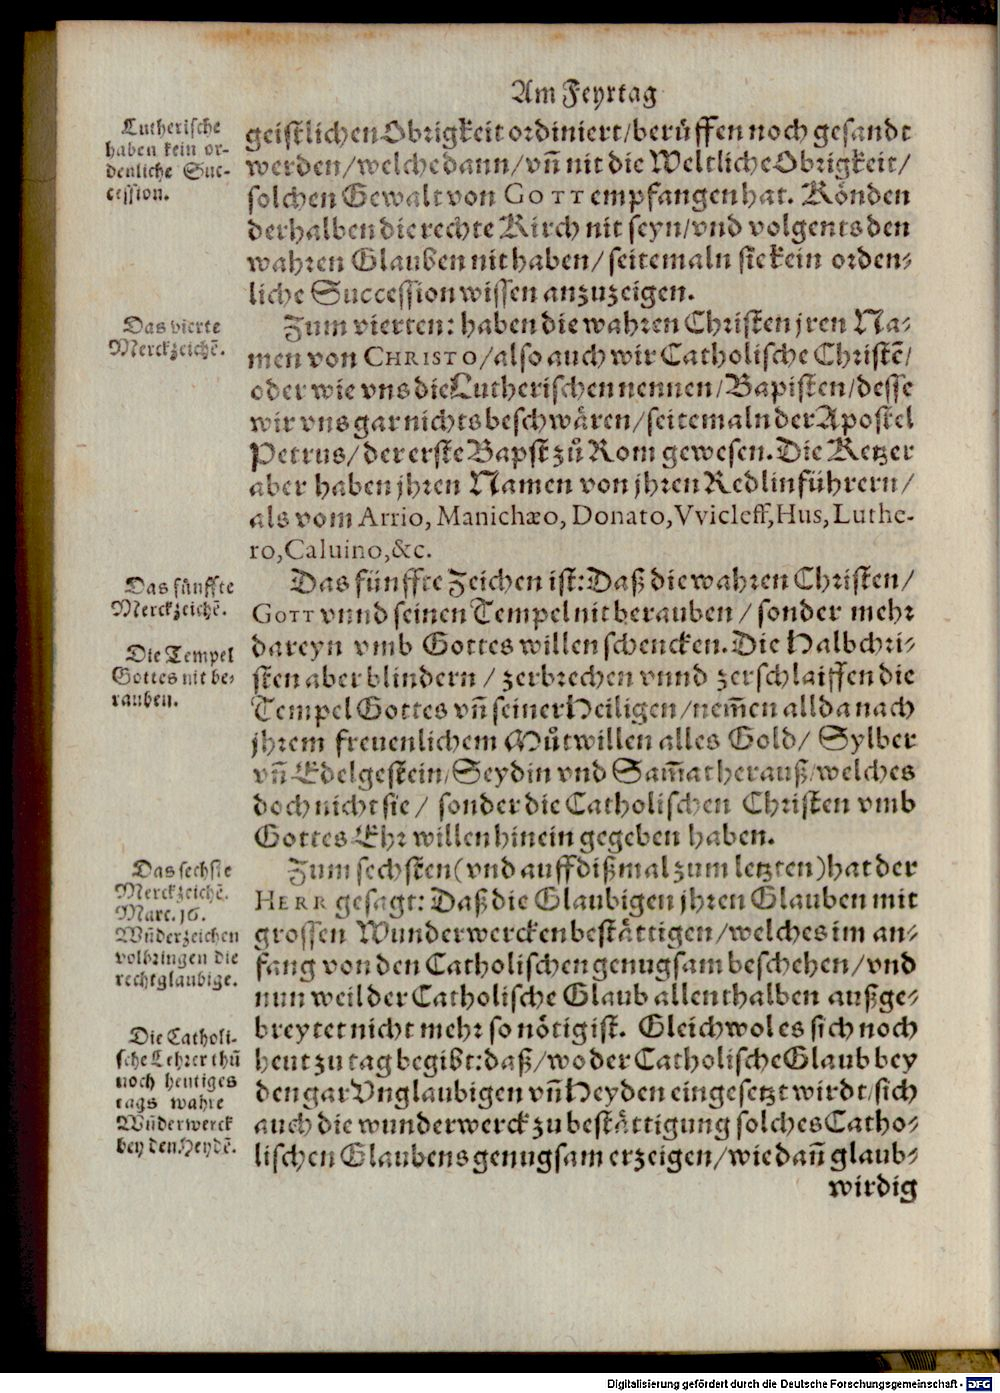 Am Feyrtag
Lutherische
haben kein or-
denliche Suc-
cession.
geistlichen Obrigkeit ordiniert/berůffen noch gesandt
werden/welche dann/vn̄ nit die Weltliche Obrigkeit/
solchen Gewalt von GOTT empfangen hat. Könden
derhalben die rechte Kirch nit seyn/vnd volgents den
wahren Glauben nit haben/seitemaln sie kein orden-
liche Succession wissen anzuzeigen.
Das vierte
Merckzeichē.
Zum vierten: haben die wahren Christen jren Na-
men von CHRISTO/also auch wir Catholische Christē/
oder wie vns die Lutherischen nennen/Bapisten/desse
wir vns gar nichts beschwären/seitemaln der Apostel
Petrus/der erste Bapst zů Rom gewesen. Die Ketzer
aber haben jhren Namen von jhren Redlinführern/
als vom Arrio, Manichæo, Donato, Vvicleff, Hus, Luthe-
ro, Caluino, &c.
Das fünffte
Merckzeichē.
Die Tempel
Gottes nit be-
rauben.
Das fünffte Zeichen ist: Daß die wahren Christen/
GOTT vnnd seinen Tempel nit berauben/ sonder mehr
dareyn vmb Gottes willen schencken. Die Halbchri-
sten aber blindern/ zerbrechen vnnd zerschlaiffen die
Tempel Gottes vn̄ seiner Heiligen/nem̄en allda nach
jhrem freuenlichem Můtwillen alles Gold/ Sylber
vn̄ Edelgestein/Seydin vnd Sam̄at herauß/welches
doch nicht sie/ sonder die Catholischen Christen vmb
Gottes Ehr willen hinein gegeben haben.
Das sechste
Merckzeichē.
Marc. 16.
Wūderzeichen
volbringen die
rechtglaubige.
Die Catholi-
sche Lehrer thū
noch heutiges
tags wahre
Wūderwerck
bey den Heydē.
Zum sechsten (vnd auff dißmal zum letzten) hat der
HERR gesagt: Daß die Glaubigen jhren Glauben mit
grossen Wunderwercken bestättigen/welches im an-
fang von den Catholischen genugsam beschehen/vnd
nun weil der Catholische Glaub allenthalben außge-
breytet nicht mehr so nötig ist. Gleichwol es sich noch
heut zu tag begibt: daß/wo der Catholische Glaub bey
den gar Vnglaubigen vn̄ Heyden eingesetzt wirdt/sich
auch die wunderwerck zu bestättigung solches Catho-
lischen Glaubens genugsam erzeigen/wie dan̄ glaub-
wirdig
Digitalisierung gefördert durch die Deutsche Forschungsgemeinschaft - DFG